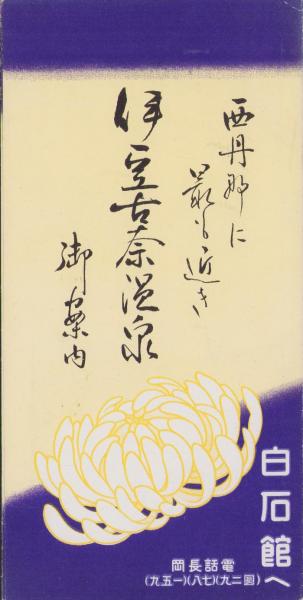 西丹那に
最も近き
伊豆古奈温泉
御案内
白石館へ
電話長岡
(圓二九)(七八)(一五九)